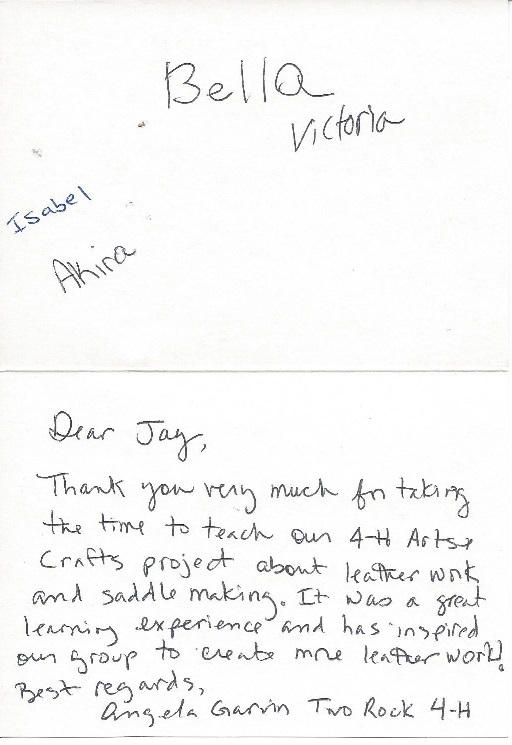 Bella
Victoria
Isabel
Akira
Dear Jay,
Thank you very much for taking
the time to teach our 4-H Arts &
Crafts project about leather work
and saddle making. It was a great
learning experience and has inspired
our group to create more leather work!
Best regards,
Angela Garvin Two Rock 4-H